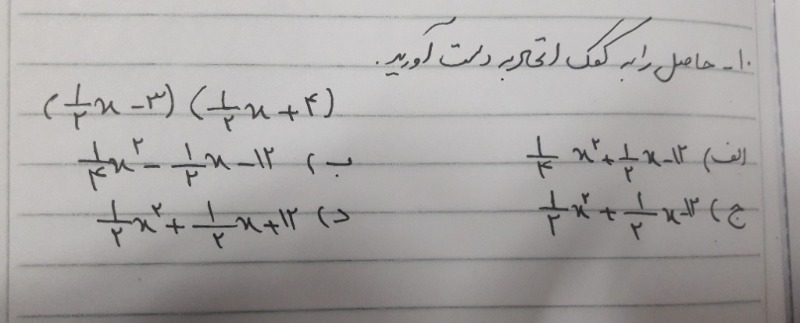 ۱۰- حاصل را به کمک اتحاد به دست آورید.
(۱/۲x - ۳) (۱/۲x + ۴)
الف) ۱/۴ x² + ۱/۲x - ۱۲ ب) ۱/۴x² - ۱/۲x - ۱۲
ج) ۱/۲x² + ۱/۲x - ۱۲ د) ۱/۲x² + ۱/۲x + ۱۲